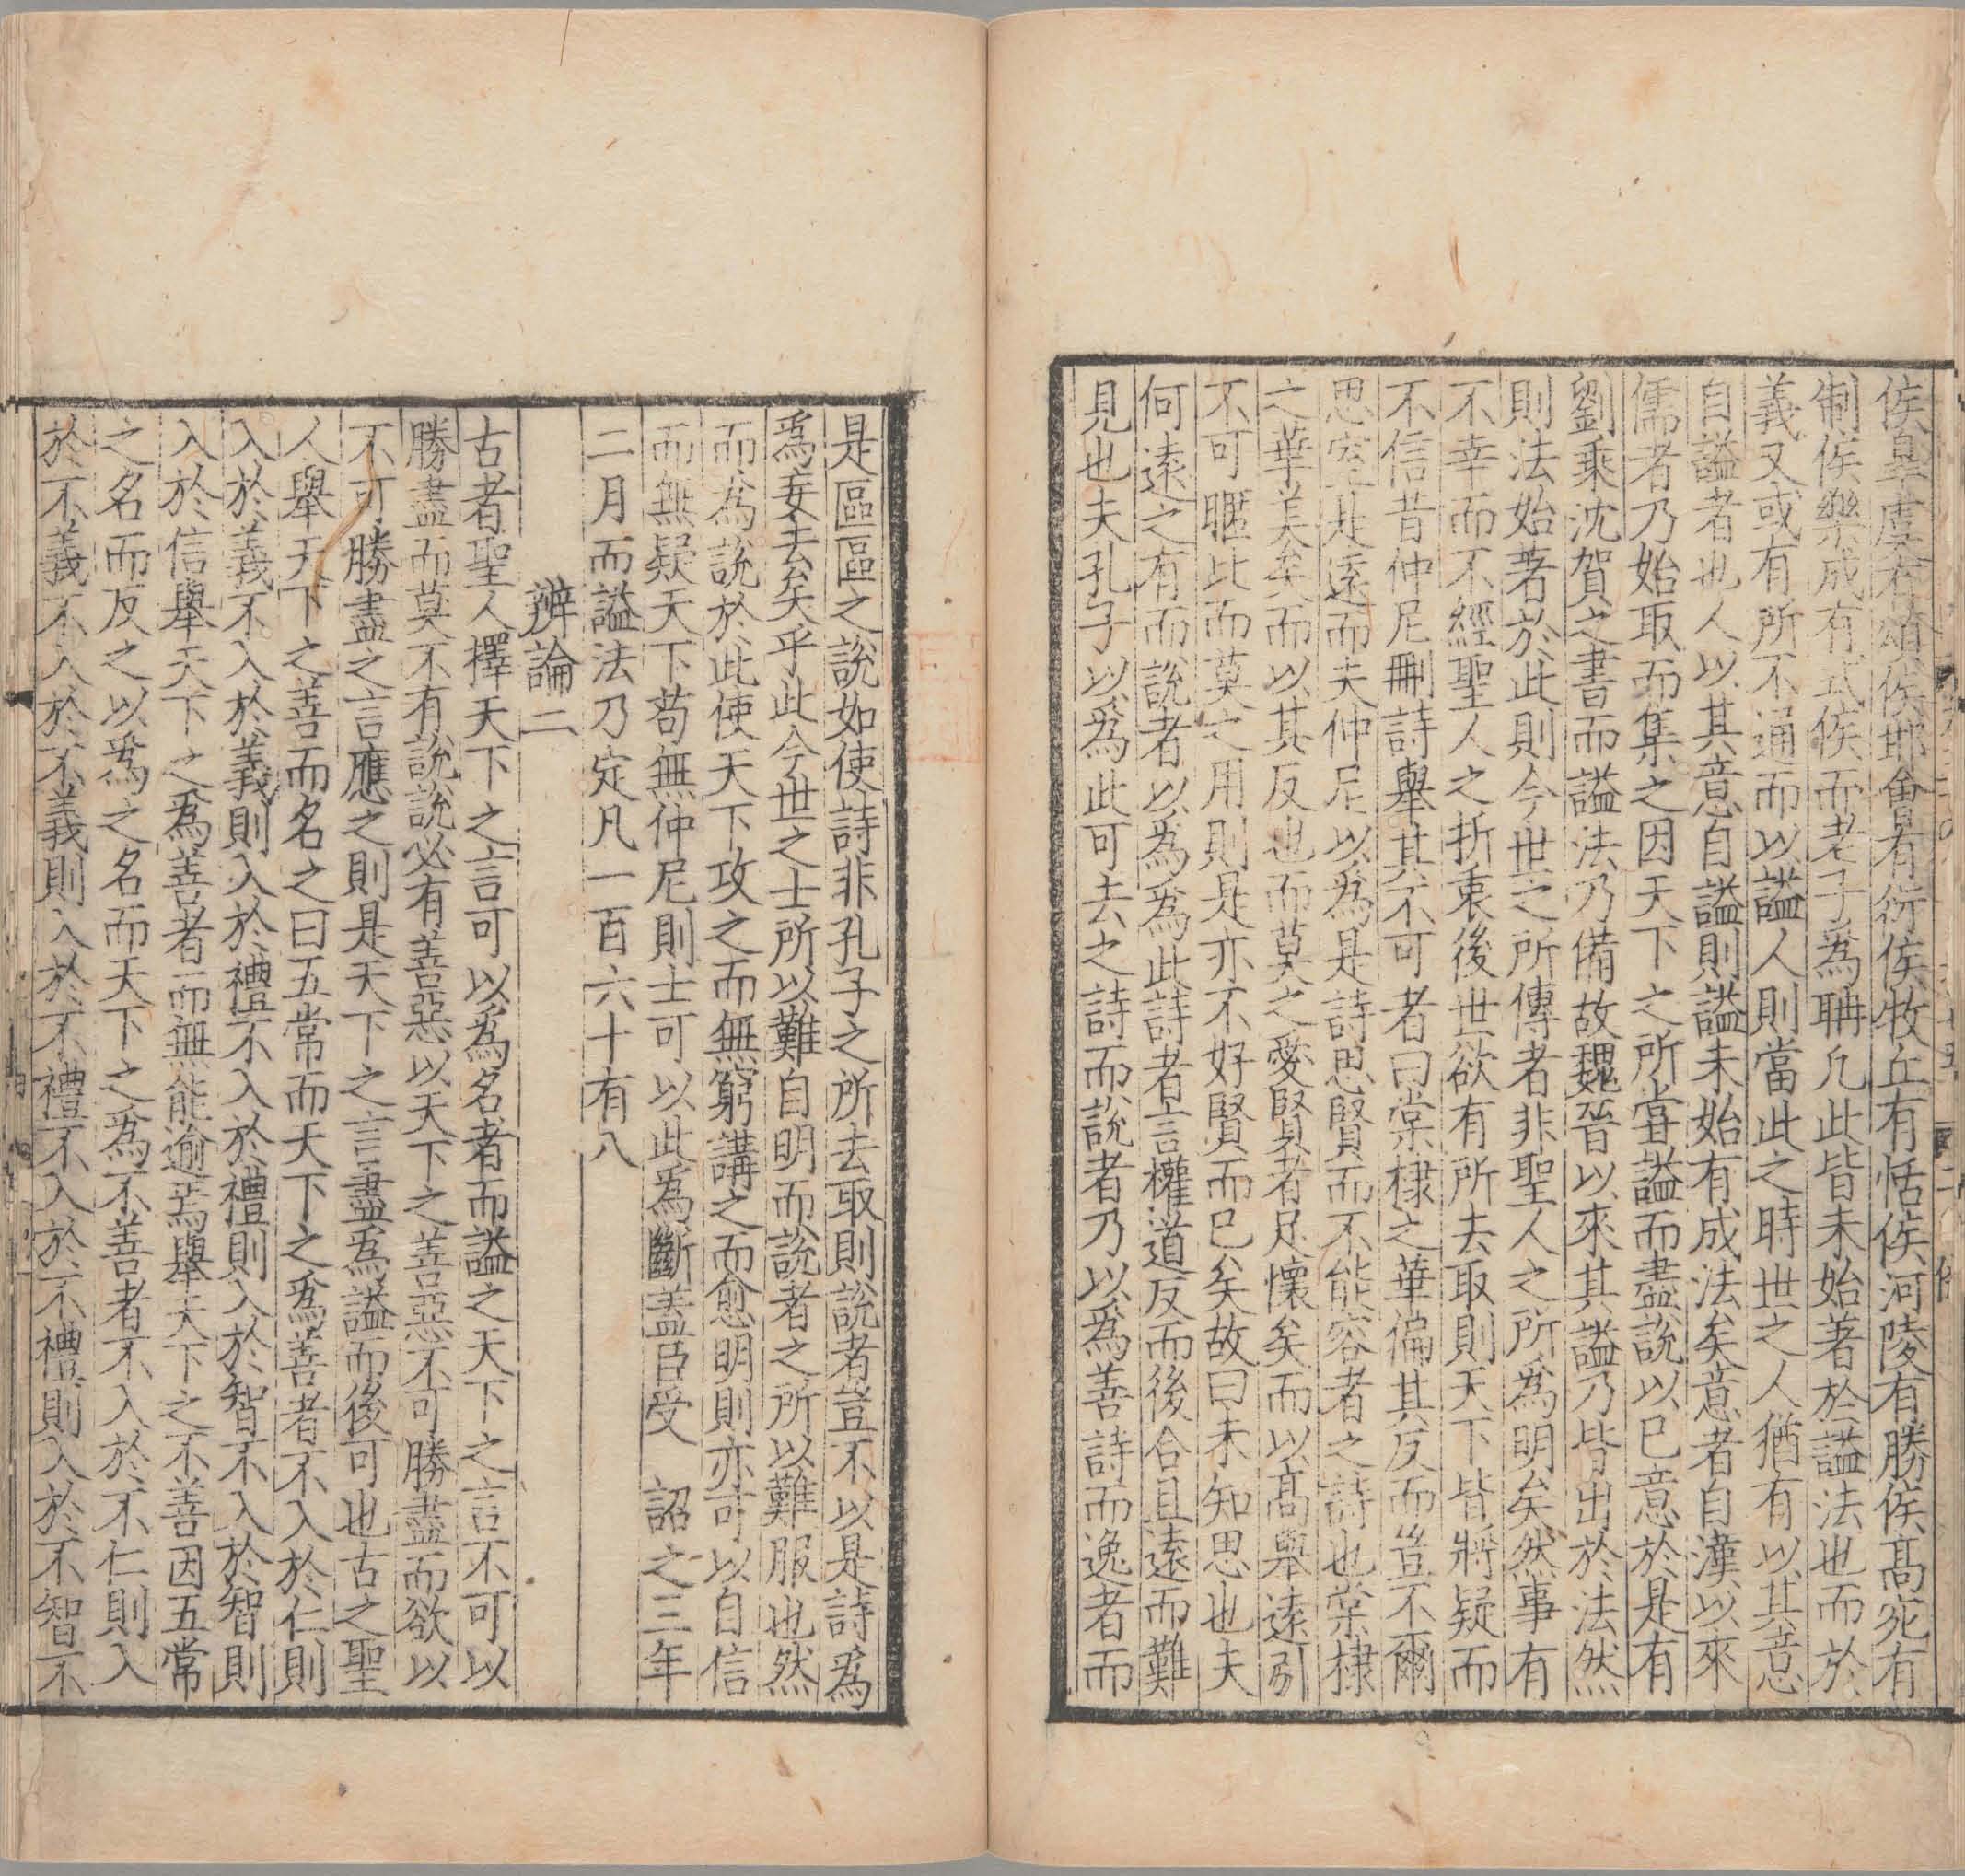 侯皐虞有頌侯邯會易有衍侯牧丘有恬侯河陵有勝侯髙宛有
制侯樂成有式侯而老子為聃凢此皆未始著於謚法也而於
義又或有所不通而以謚人則當此之時世之人猶有以其意
自謚者也人以其意自謚則謚未始有成法矣意者自漢以來
儒者乃始取而集之因天下之所甞謚而盡說以已意於是有
劉乘沈賀之書而謚法乃備故魏晉以來其謚乃皆出於法然
則法始著於此則今世之所傳者非聖人之所為明矣然事有
不幸而不經聖人之折衷後世欲有所去取則天下皆將疑而
不信昔仲尼刪詩舉其不可者曰棠棣之華偏其反而豈不爾
思室是逺而夫仲尼以為是詩思賢而不能容者之詩也棠棣
之華美矣而以其反也而莫之愛賢者足懷矣而以髙舉逺引
不可暱比而莫之用則是亦不好賢而已矣故曰未知思也夫
何逺之有而說者以為為此詩者言權道反而後合且逺而難
見也夫孔子以為此可去之詩而說者乃以為善詩而逸者而
是區區之說如使詩非孔子之所去取則說者豈不以是詩爲
爲妄去矣乎此今世之士所以難自明而說者之所以難服也然
而為說於此使天下攻之而無窮講之而愈明則亦可以自信
而無疑天下茍無仲尼則士可以此爲斷蓋臣受　詔之三年
二月而謚法乃定凡一百六十有八
辨論二
古者聖人擇天下之言可以爲名者而謚之天下之言不可以
勝盡而莫不有說說必有善惡以天下之善惡不可勝盡而欲以
不可勝盡之言應之則是天下之言盡爲謚而後可也古之聖
人舉天下之善而名之曰五常而天下之爲善者不入於仁則
入於義不入於義則入於禮不入於禮則入於智不入於智則
入於信舉天下之爲善者而無能逾焉舉天下之不善因五常
之名而反之以爲之名而天下之爲不善者不入於不仁則入
於不義不入於不義則入於不禮不入於不禮則入於不智不